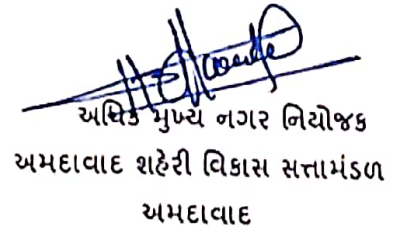 અધિક મુખ્ય નગર નિયોજક
અમદાવાદ શહેરી વિકાસ સત્તામંડળ
અમદાવાદ